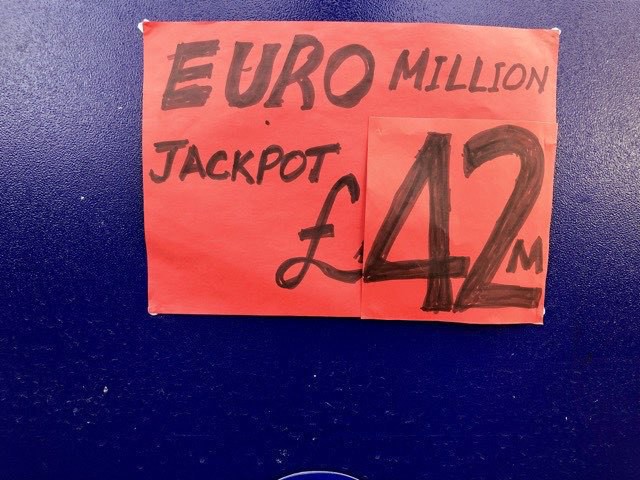 EURO MILLION
JACKPOT
£42M